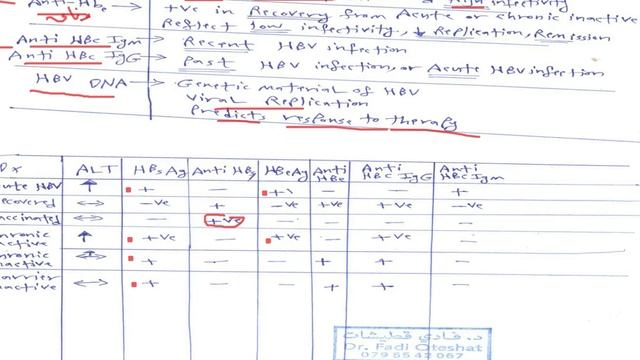 Anti-HBe → +ve in Recovery from Acute or chronic inactive
Reflect low infectivity, ↓ Replication, Remission
Anti HBc IgM → Recent HBV infection
Anti HBc IgG → Past HBV infection, or Acute HBV infection
HBV DNA → Genetic material of HBV
Viral Replication
Predicts response to therapy
Dx ALT HBsAg Anti HBs HBeAg Anti HBe Anti HBc IgG Anti HBc IgM
Acute HBV ↑ + — + — — +
Recovered ↔ -ve + -ve +ve +ve -ve
Vaccinated ↔ — +ve — — — —
chronic active ↑ +ve — +ve — +ve —
chronic inactive + — — + + —
carrier inactive ↔ + — — + + —
د. فادي قطيشات
Dr. Fadi Qteshat